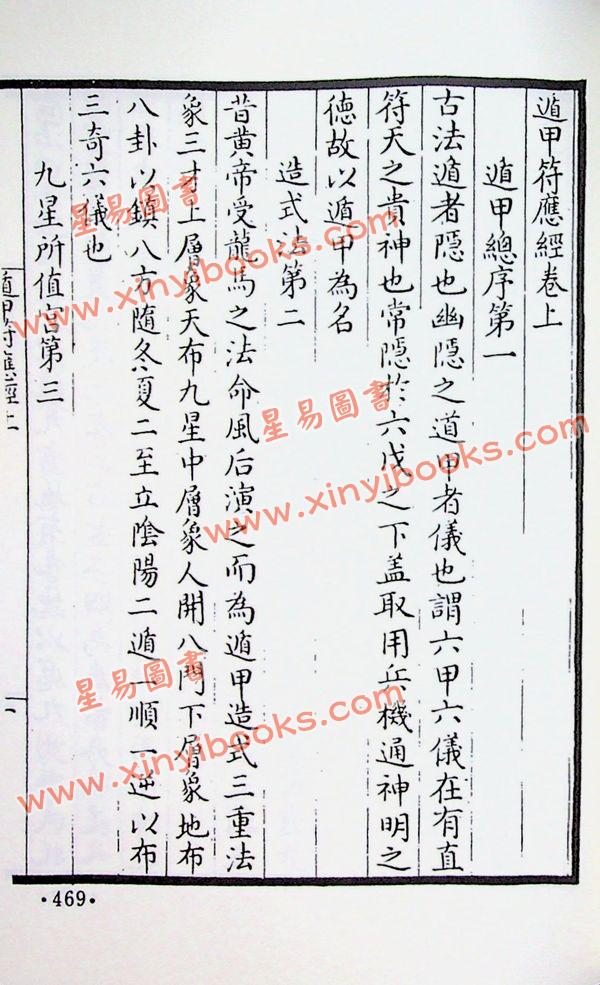 遁甲符應經卷上
遁甲總序第一
古法遁者隱也幽隱之道甲者儀也謂六甲六儀在有直
符天之貴神也常隱於六戊之下盖取用兵機通神明之
德故以遁甲為名
造式法第二
昔黄帝受龍馬之法命風后演之而為遁甲造式三重法
象三才上層象天布九星中層象人開八門下層象地布
八卦以鎮八方隨冬夏二至立陰陽二遁一順一逆以布
三奇六儀也
九星所值宮第三
遁甲符應經上
一
·469·
星易圖書
www.xinyibooks.com
星易圖書
www.xinyibooks.com
星易圖書
www.xinyibooks.com